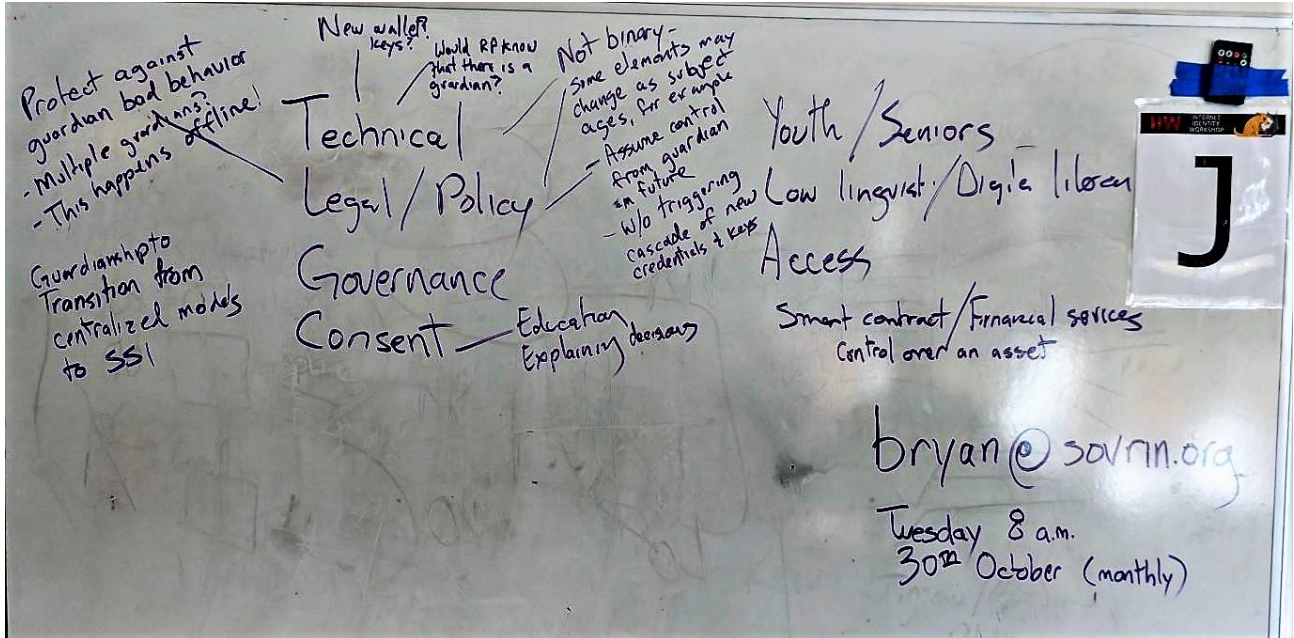 Protect against
guardian bad behavior
- Multiple guardians?
- This happens offline!
Guardianship to
Transition from
centralized models
to SSI
New wallet?
keys?
Would RP know
that there is a
guardian?
Technical
Legal / Policy
Governance
Consent
Education
Explaining decisions
Not binary -
Some elements may
change as subject
ages, for example
- Assume control
from guardian
in future
- W/o triggering
cascade of new
credentials & keys
Youth / Seniors
Low linguist. / Digi'a literacy
Access
Smart contract / Financial services
Control over an asset
bryan@sovrin.org
Tuesday 8 a.m.
30th October (monthly)
IIW INTERNET
IDENTITY
WORKSHOP
J